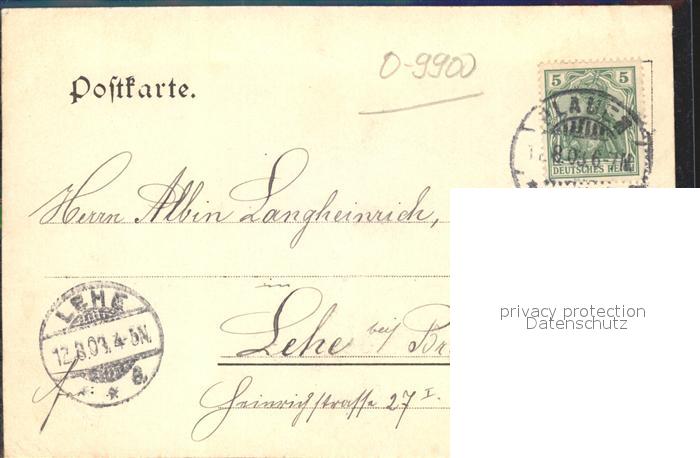 O-9900
Postkarte.
5 5
PLAUEN
DEUTSCHES REICH
Herrn Albin Langheinrich,
in
Lehe bei Br
Heinrichstrasse 27 I.
LEHE
12.8.03. 4-5N.
a.
privacy protection
Datenschutz